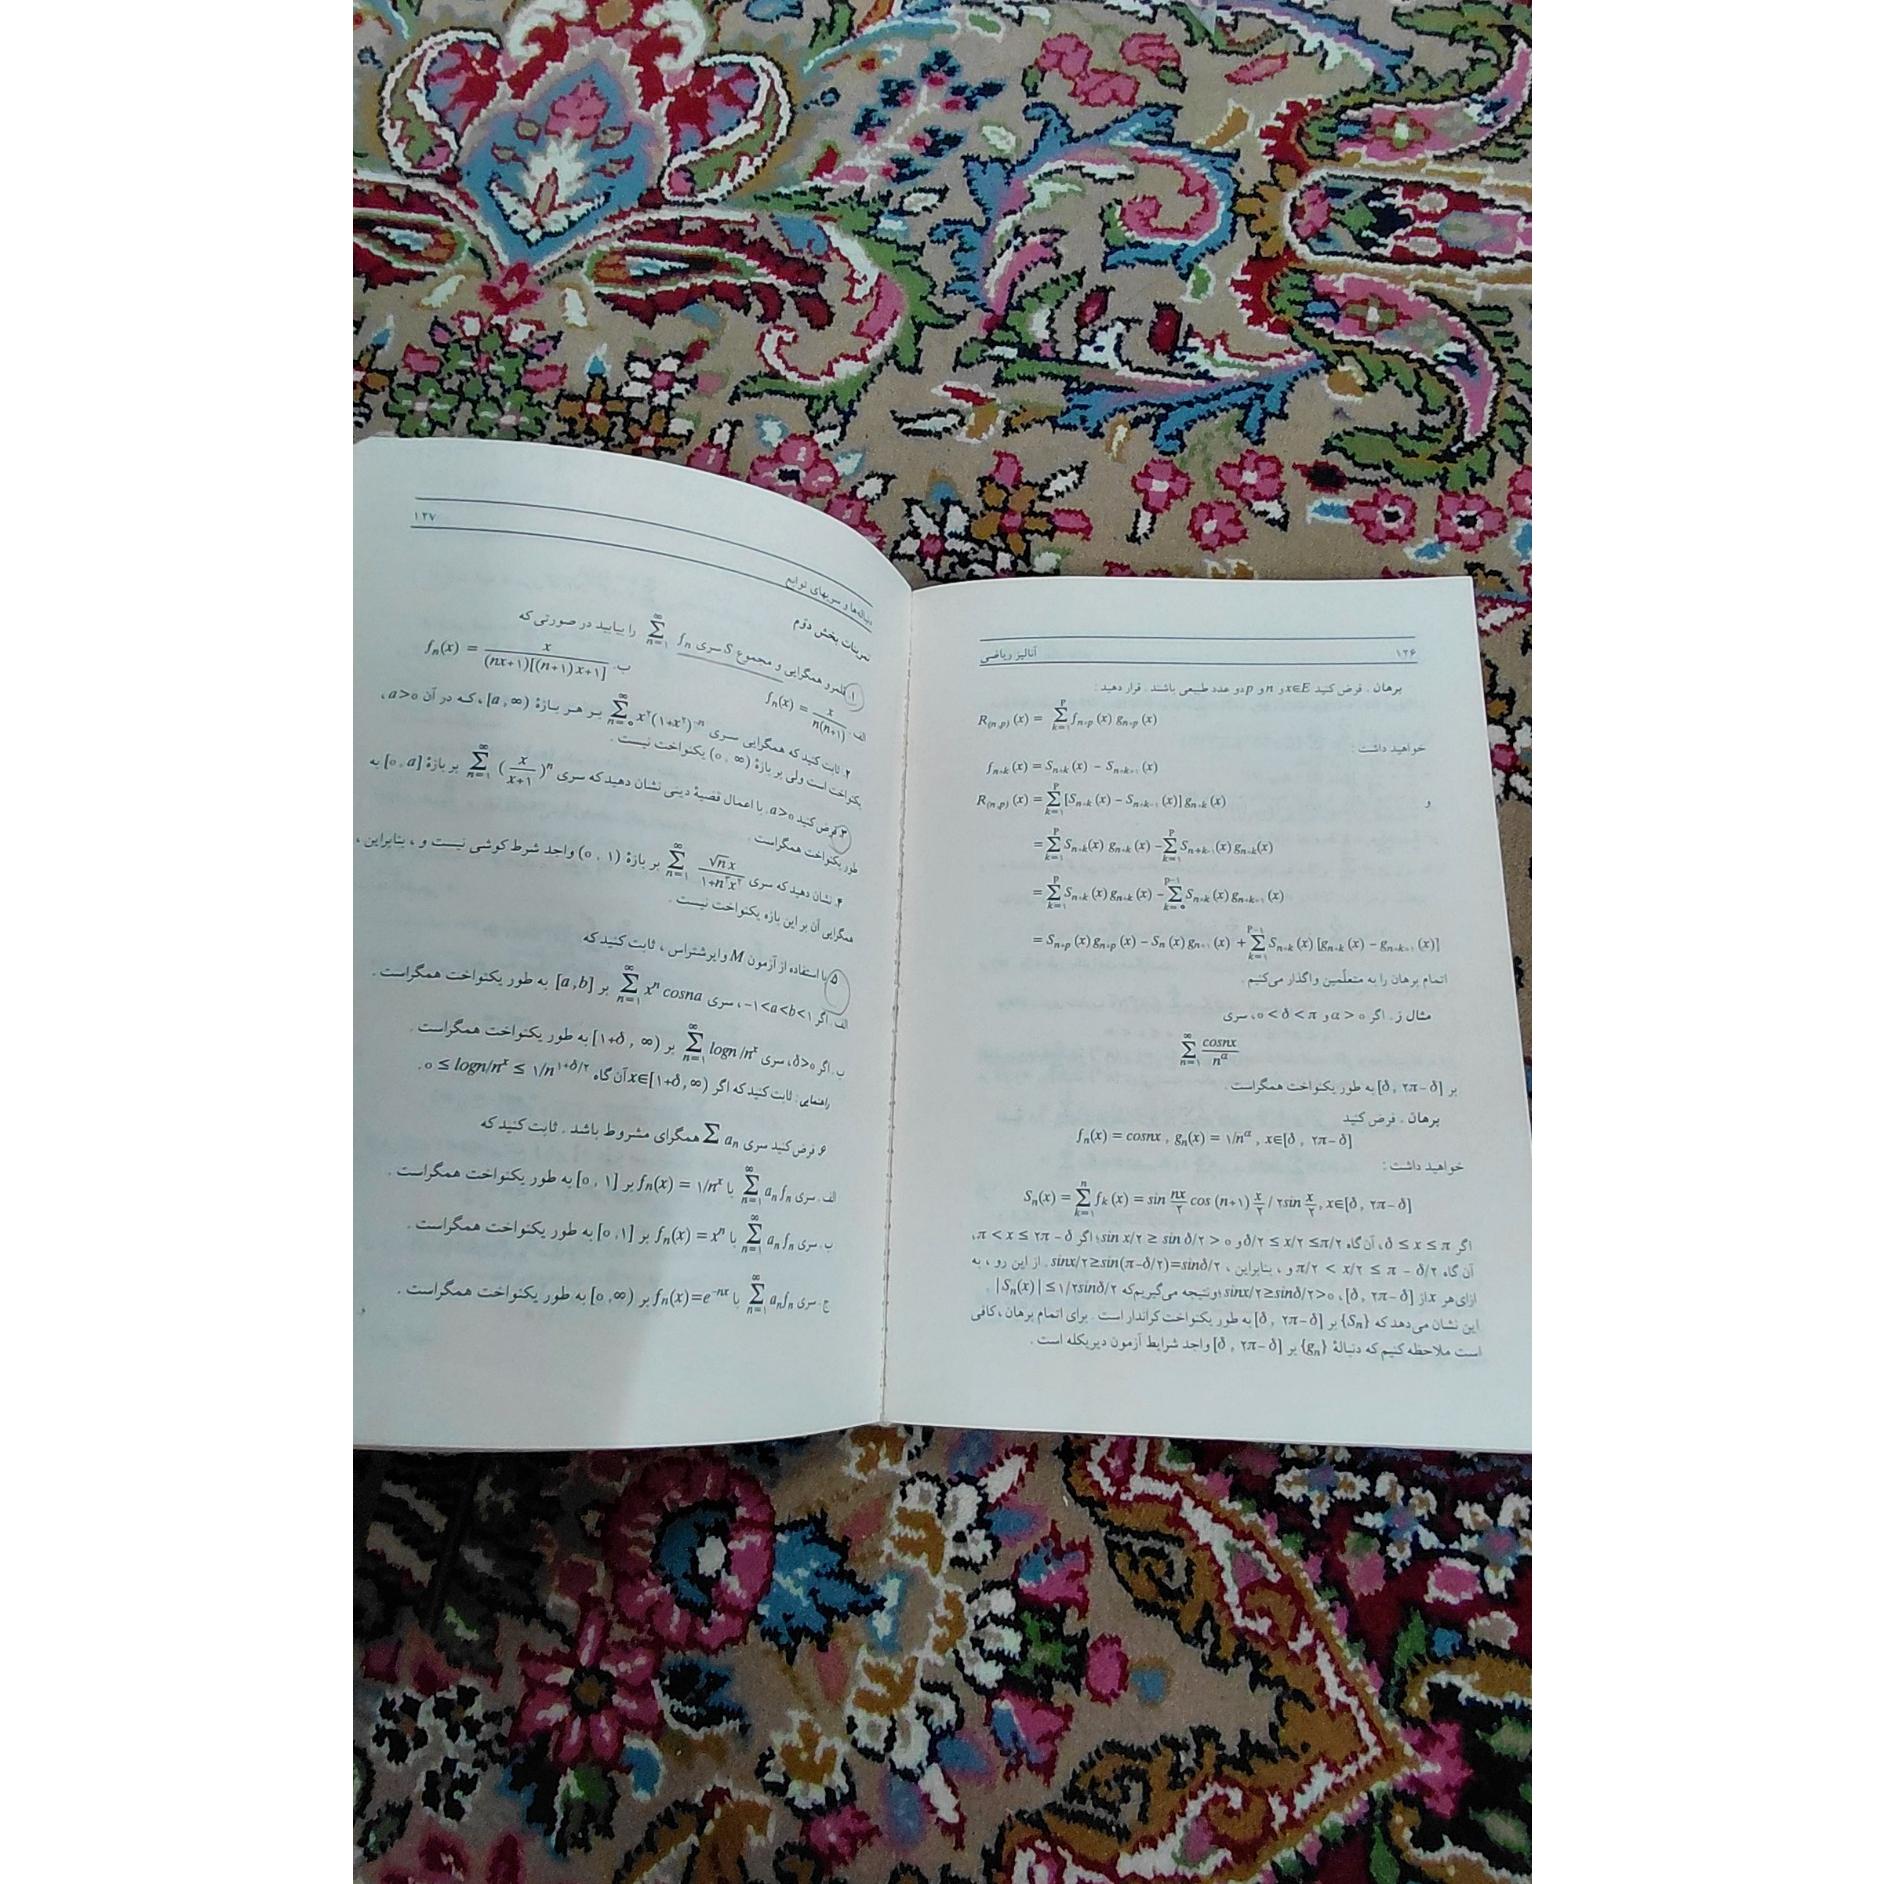 ۱۲۶ آنالیز ریاضی
برهان . فرض کنید x∈E و n و p دو عدد طبیعی باشند . قرار دهید :
R(n,p) (x) = ∑_{k=۱}^{p} f_{n+p} (x) g_{n+p} (x)
خواهید داشت :
f_{n+k} (x) = S_{n+k} (x) − S_{n+k-۱} (x)
و
R(n,p) (x) = ∑_{k=۱}^{p} [S_{n+k} (x) − S_{n+k-۱} (x)] g_{n+k} (x)
= ∑_{k=۱}^{p} S_{n+k} (x) g_{n+k} (x) − ∑_{k=۱}^{p} S_{n+k-۱} (x) g_{n+k} (x)
= ∑_{k=۱}^{p} S_{n+k} (x) g_{n+k} (x) − ∑_{k=۰}^{p-۱} S_{n+k} (x) g_{n+k+۱} (x)
= S_{n+p} (x) g_{n+p} (x) − S_n (x) g_{n+۱} (x) + ∑_{k=۱}^{p-۱} S_{n+k} (x) [g_{n+k} (x) − g_{n+k+۱} (x)]
اتمام برهان را به متعلّمین واگذار می‌کنیم .
مثال ز . اگر α > ۰ و ۰ < δ < π، سری
∑_{n=۱}^{∞} cosnx / n^α
بر [δ , ۲π−δ] به طور یکنواخت همگراست .
برهان . فرض کنید
f_n(x) = cosnx , g_n(x) = ۱/n^α , x∈[δ , ۲π−δ]
خواهید داشت :
S_n(x) = ∑_{k=۱}^{n} f_k (x) = sin nx/۲ cos (n+۱) x/۲ / ۲sin x/۲ , x∈[δ , ۲π−δ]
اگر δ ≤ x ≤ π، آن گاه δ/۲ ≤ x/۲ ≤ π/۲ و sin x/۲ ≥ sin δ/۲ > ۰؛ اگر π < x ≤ ۲π − δ،
آن گاه π/۲ < x/۲ ≤ π − δ/۲ و ، بنابراین ، sinx/۲≥sin(π−δ/۲)=sinδ/۲ . از این رو ، به
ازای هر x از [δ , ۲π−δ]، sinx/۲≥sinδ/۲>۰؛ ونتیجه می‌گیریم که |S_n(x)| ≤ ۱/۲sinδ/۲ .
این نشان می‌دهد که {S_n} بر [δ , ۲π−δ] به طور یکنواخت کراندار است . برای اتمام برهان ، کافی
است ملاحظه کنیم که دنبالهٔ {g_n} بر [δ , ۲π−δ] واجد شرایط آزمون دیریکله است .
دنباله‌ها و سریهای توابع ۱۲۷
تمرینات بخش دوّم
۱. قلمرو همگرایی و مجموع S سری ∑_{n=۱}^{∞} f_n را بیابید در صورتی که
الف . f_n(x) = x / n(n+۱) ب. f_n(x) = x / (nx+۱)[(n+۱)x+۱]
۲. ثابت کنید که همگرایی سری ∑_{n=۰}^{∞} x^۲(۱+x^۲)^{-n} بر هر بازهٔ [a , ∞)، که در آن a>۰،
یکنواخت است ولی بر بازهٔ (۰ , ∞) یکنواخت نیست .
۳. فرض کنید a>۰. با اعمال قضیهٔ دینی نشان دهید که سری ∑_{n=۱}^{∞} (x/x+۱)^n بر بازهٔ [۰ , a] به
طور یکنواخت همگراست .
۴. نشان دهید که سری ∑_{n=۱}^{∞} √n x / ۱+n^۳x^۲ بر بازهٔ (۰ , ۱) واجد شرط کوشی نیست و ، بنابراین ،
همگرایی آن بر این بازه یکنواخت نیست .
۵. با استفاده از آزمون M وایرشتراس ، ثابت کنید که
الف . اگر −۱<a<b<۱، سری ∑_{n=۱}^{∞} x^n cosna بر [a,b] به طور یکنواخت همگراست .
ب . اگر δ>۰، سری ∑_{n=۱}^{∞} logn/n^x بر [۱+δ , ∞) به طور یکنواخت همگراست .
راهنمایی : ثابت کنید که اگر x∈[۱+δ,∞) آن گاه ۰ ≤ logn/n^x ≤ ۱/n^{۱+δ/۲} .
۶. فرض کنید سری ∑ a_n همگرای مشروط باشد . ثابت کنید که
الف . سری ∑_{n=۱}^{∞} a_n f_n با f_n(x) = ۱/n^x بر [۰ , ۱] به طور یکنواخت همگراست .
ب . سری ∑_{n=۱}^{∞} a_n f_n با f_n(x) = x^n بر [۰,۱] به طور یکنواخت همگراست .
ج . سری ∑_{n=۱}^{∞} a_n f_n با f_n(x)=e^{-nx} بر [۰,∞) به طور یکنواخت همگراست .
و